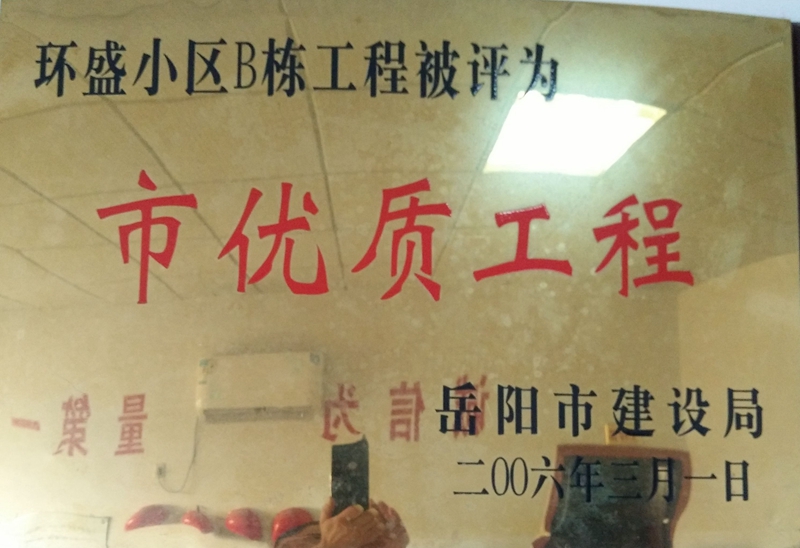 环盛小区B栋工程被评为
市优质工程
一第量 为信诚
岳阳市建设局
二00六年三月一日